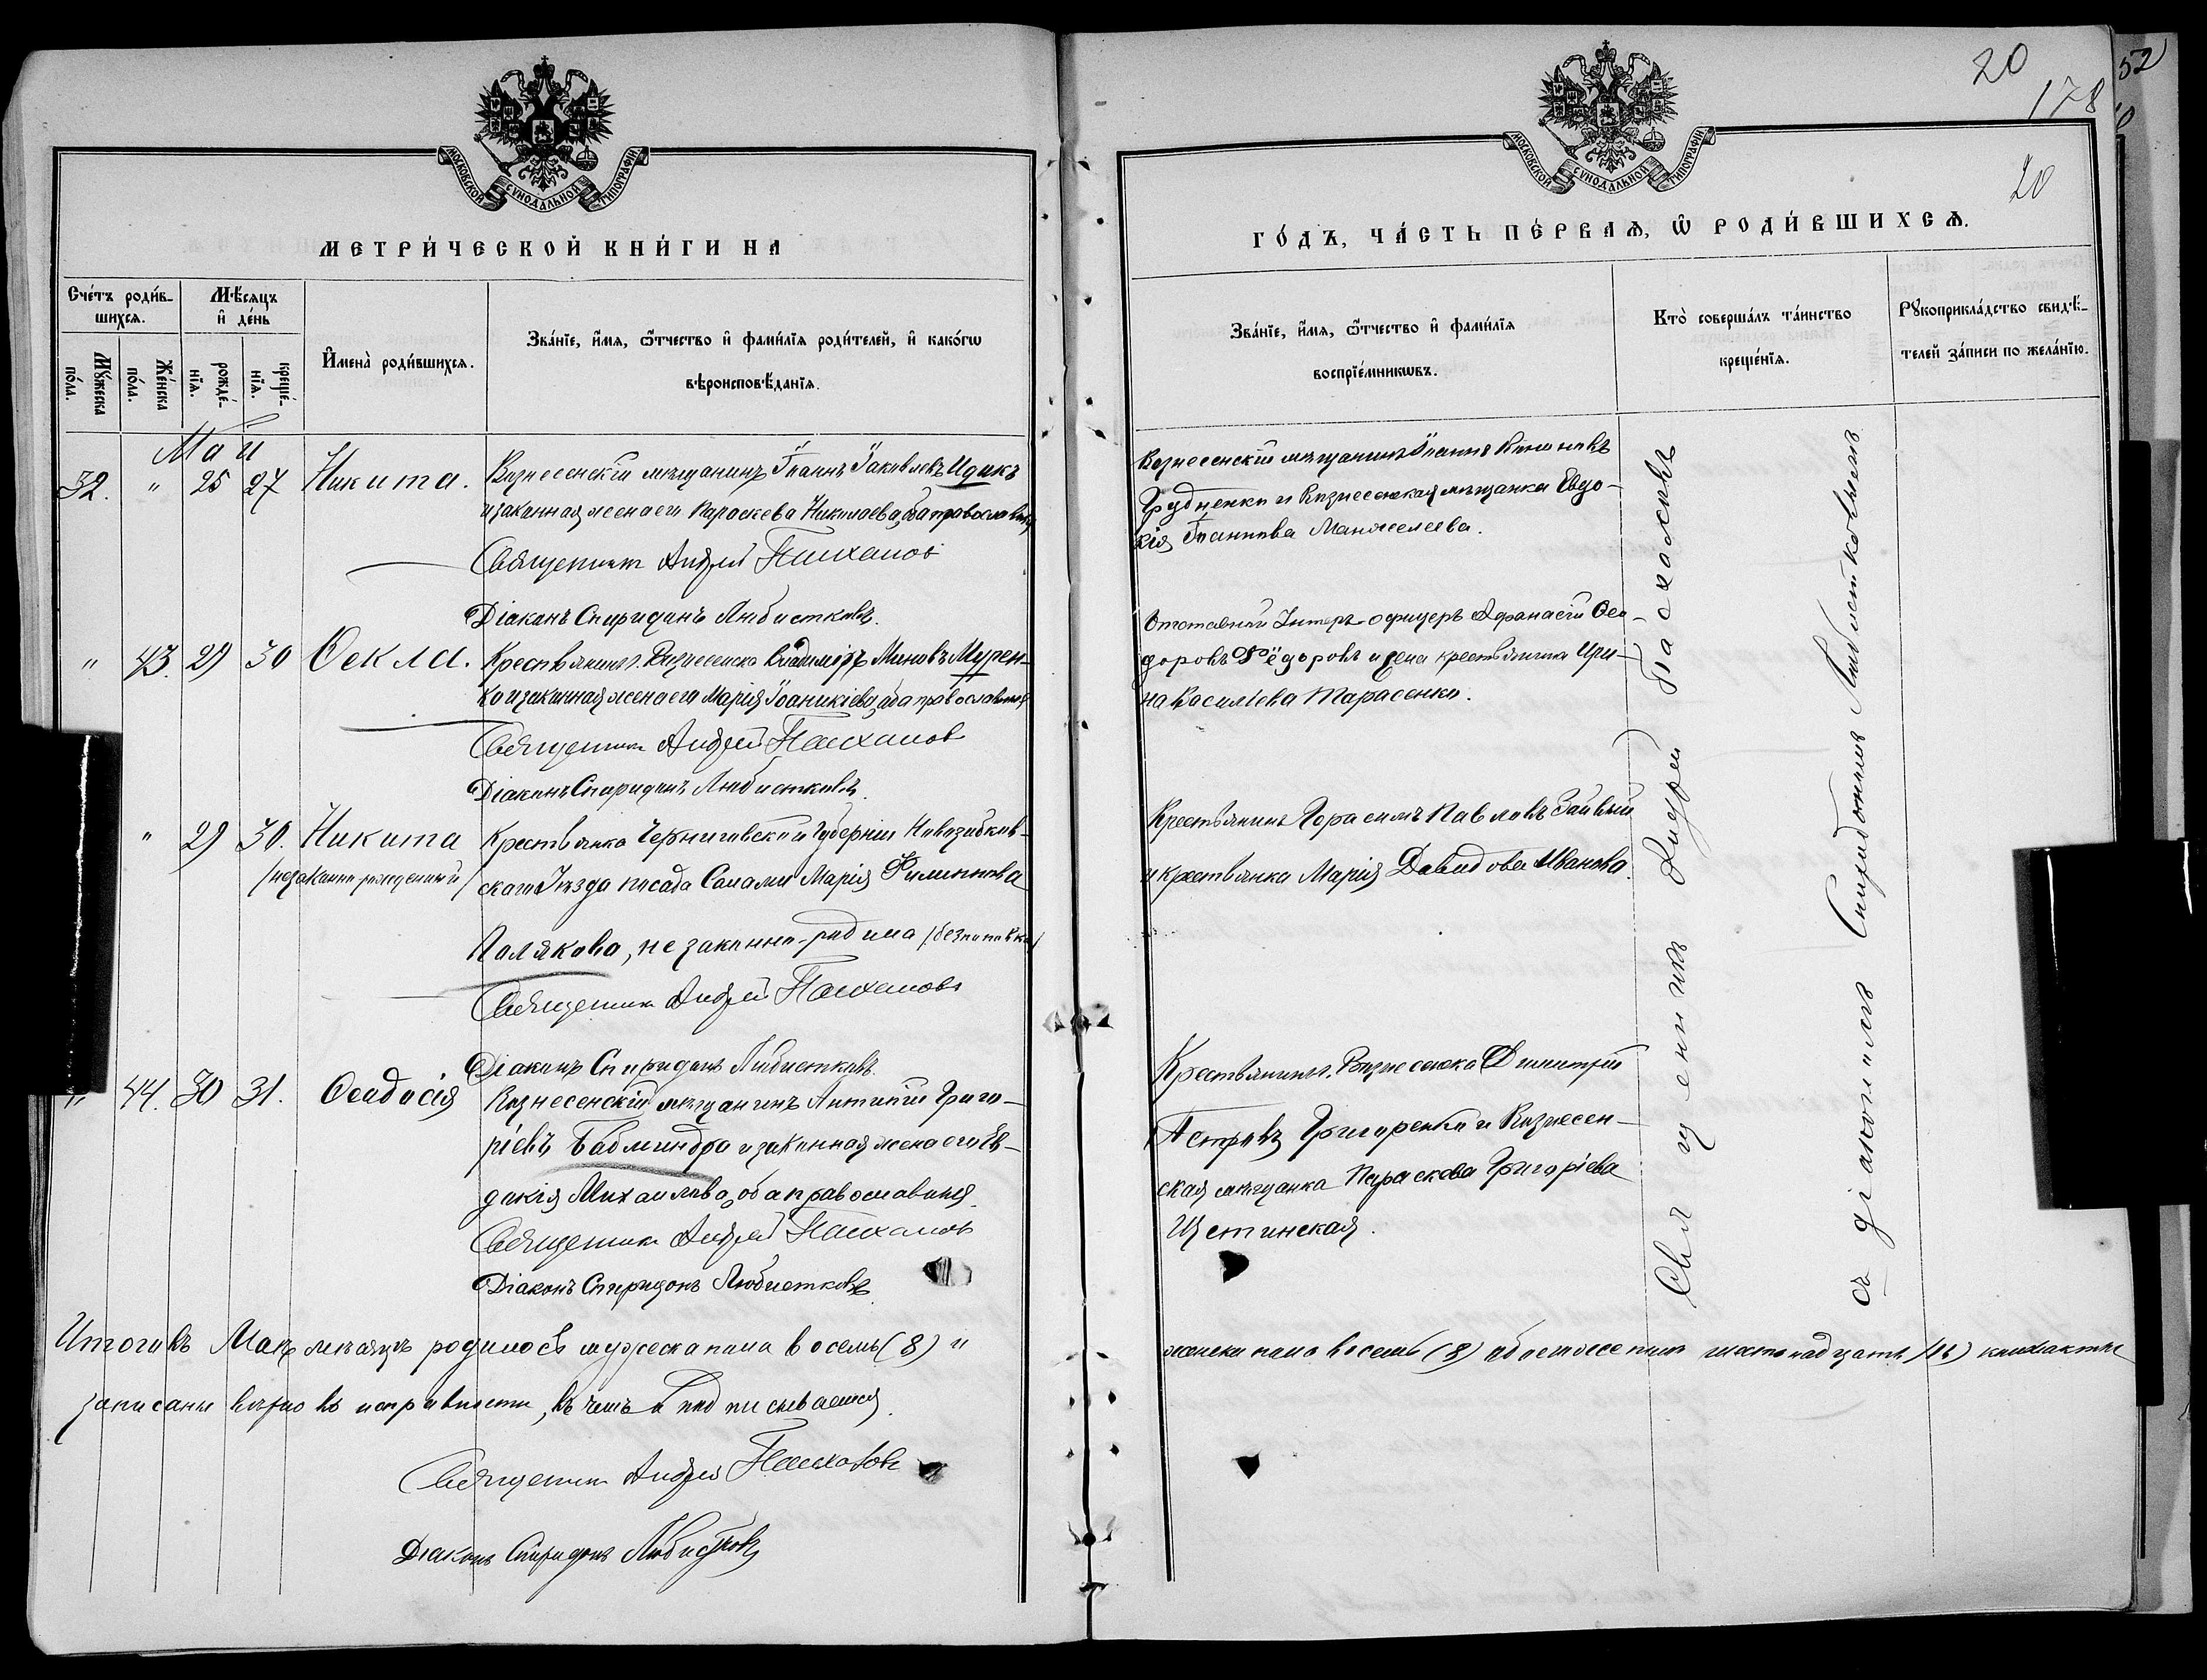 20
178
52
20
МОСКОВСКОЙ СѴНОДАЛЬНОЙ ТИПОГРАФІИ.
МЕТРИ́ЧЕСКОЙ КНИ́ГИ НА
Сче́тъ роди́вшихсѧ.
Мꙋ́жеска по́ла.
Же́нска по́ла.
Мѣ́сяцъ и҆ де́нь
рожде́нїѧ.
креще́нїѧ.
И҆мена̀ роди́вшихсѧ.
Зва́нїе, и҆́мѧ, ѻ҆́тчество и҆ фами́лїѧ роди́телей, и҆ како́гѡ
вѣроисповѣ́данїѧ.
Май
32. " 25 27 Никита.
Вознесенскій мѣщанинъ Іоаннъ Іаковлевъ Идакъ
и законная жена его Параскева Николаева, оба православные
Священникъ Андрей Пасхаловъ
Діаконъ Спиридонъ Любистковъ.
" 43. 29 30 Ѳекла.
Крестьянинъ г. Вознесенска Владиміръ Миновъ Мурен-
ко и законная жена его Марія Іоаникіева, оба православные
Священникъ Андрей Пасхаловъ
Діаконъ Спиридонъ Любистковъ.
" 29 30. Никита
/незаконнорожденный/
Крестьянка Черниговской Губерніи Новозыбков-
скаго Уѣзда посада Марія Филиппова
Полякова, незаконно-родила /безпоповка/
Священникъ Андрей Пасхаловъ
Діаконъ Спиридонъ Любистковъ.
" 44. 30 31. Ѳеодосія
Вознесенскій мѣщанинъ Антипій Григо-
ріевъ Бабминдра и законная жена его Ев-
докія Михайлова, оба православные.
Священникъ Андрей Пасхаловъ
Діаконъ Спиридонъ Любистковъ.
Итого въ Маѣ мѣсяцѣ родилось мужеска пола восемь (8) и
записаны вѣрно въ исправности, въ чемъ и подписываемся.
Священникъ Андрей Пасхаловъ
Діаконъ Спиридонъ Любистковъ
МОСКОВСКОЙ СѴНОДАЛЬНОЙ ТИПОГРАФІИ.
ГО́ДЪ, ЧА́СТЬ ПЕ́РВАѦ, Ѡ҆ РОДИ́ВШИХСѦ.
Зва́нїе, и҆́мѧ, ѻ҆́тчество и҆ фами́лїѧ
воспрїе́мникѡвъ.
Кто̀ соверша́лъ та́инство
креще́нїѧ.
Рꙋкоприкла́дство свидѣ́-
телей за́писи по жела́нїю.
Вознесенскій мѣщанинъ Іоаннъ
Грудненко и Вознесенская мѣщанка Евдо-
кія Іоаннова Манжелеева.
Отставной Унтеръ-офицеръ Афанасій Ѳео-
доровъ Фёдоровъ и жена крестьянина Ири-
на Васильева Тарасенко.
Крестьянинъ Герасимъ Павловъ
и крестьянка Марія Давидова Иванова.
Крестьянинъ г. Вознесенска Димитрій
Петровъ Григоренко и Вознесен-
ская мѣщанка Параскева Григоріева
Щетинская.
Священникъ Андрей Пасхаловъ
съ діакономъ Спиридономъ Любистковымъ
женска пола восемь (8) обоего же пола шестнадцать (16)